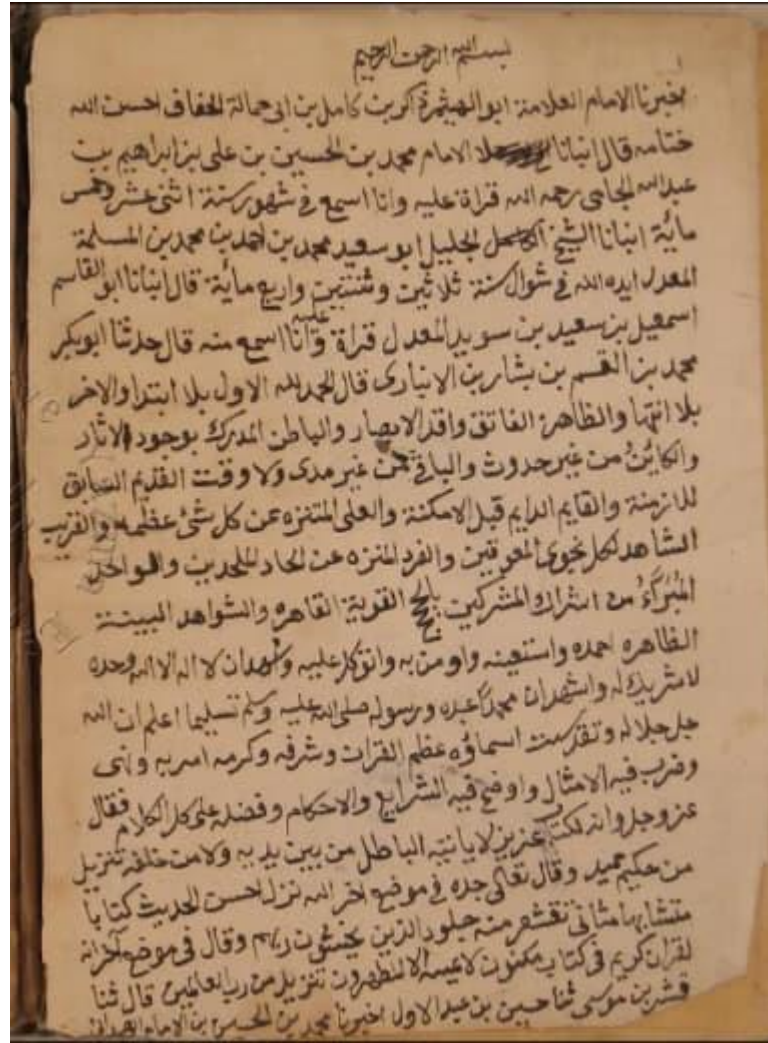 بسم الله الرحمن الرحيم
اخبرنا الامام العلامة ابو الهيثم ذاكر بن كامل بن ابى حمالة الخفاف احسن الله
ختامه قال انبانا الامام محمد بن الحسين بن على بن ابراهيم بن
عبد الله رحمه الله قراة عليه وانا اسمع فى شهور سنة اثنى عشر وخمس
مائة انبانا الشيخ الجليل ابو سعيد محمد بن احمد بن محمد بن المسلمة
المعدل ايده الله فى شوال سنة ثلاثين وثنتين واربع مائة قال انبانا ابو القاسم
اسمعيل بن سعيد بن سويد المعدل قراة عليه وانا اسمع منه قال حدثنا ابو بكر
محمد بن القسم بن بشار بن الانبارى قال الحمد لله الاول بلا ابتدا والاخر
بلا انتها والظاهر الابصار والباطن المدرك بوجود الاثار
والكاين من غير حدوث والباقى من غير مدى ولا وقت القديم السابق
للازمنة والقايم الدايم قبل الامكنة والعلى المتنزه عن كل شئ والقريب
الشاهد لكل نجوى والفرد المنزه عن الحاد الملحدين والواحد
المبراء من اشراك المشركين القوية القاهره والشواهد المبينة
الظاهره احمده واستعينه واومن به واتوكل عليه واشهد ان لا اله الا الله وحده
لا شريك له واشهد ان محمدا عبده ورسوله صلى الله عليه وسلم تسليما اعلم ان الله
جل جلاله وتقدست اسماؤه عظم القران وشرفه وكرمه امر به ونهى
وضرب فيه الامثال واوضح فيه الشرايع والاحكام وفضله على كل الكلام فقال
عز وجل وانه لكتاب عزيز لا ياتيه الباطل من بين يديه ولا من خلفه تنزيل
من حكيم حميد وقال تعالى جده فى موضع اخر الله نزل احسن الحديث كتابا
متشابها مثانى تقشعر منه جلود الذين يخشون ربهم وقال فى موضع آخر انه
لقران كريم فى كتاب مكنون لا يمسه الا المطهرون تنزيل من رب العالمين قال ثنا
بن موسى ثنا حسين بن عبد الاول اخبرنا محمد بن الحسن بن الامام الهمدانى